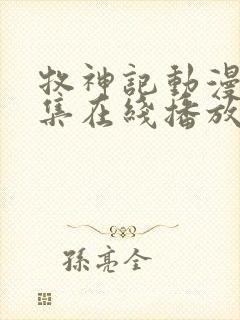 牧神記動漫
集在綫播放
孫亮全